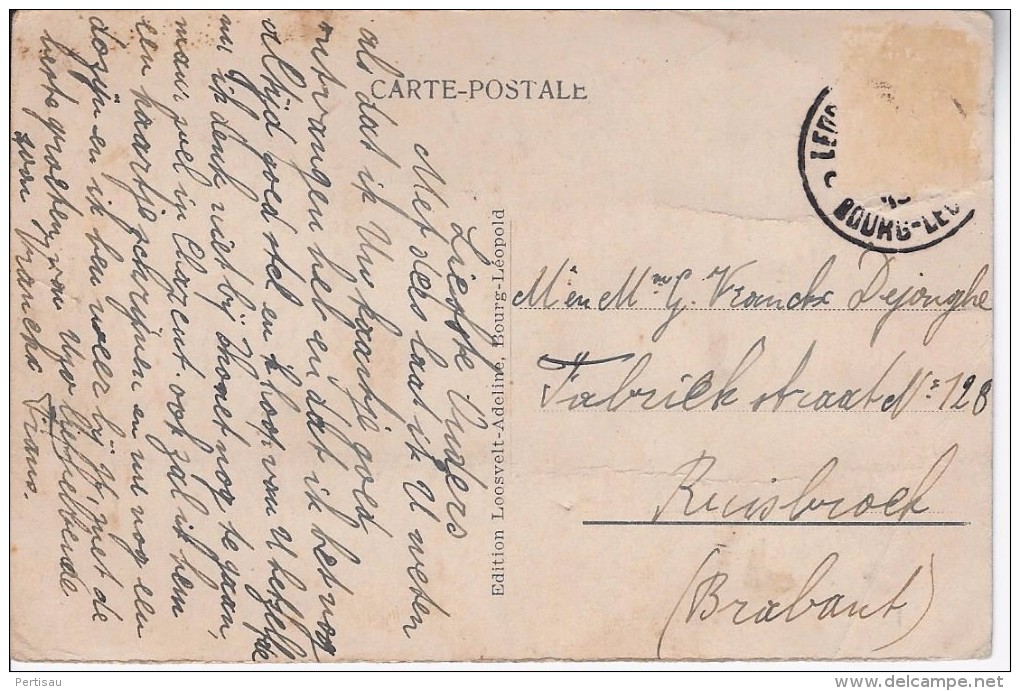 CARTE-POSTALE
LEOP
BOURG-LEO
Edition Loosvelt-Adeline, Bourg-Léopold
Liefste Ouders
Met dees laat ik U weten
als dat ik Uw kaartje goed
ontvangen heb en dat ik het nog
altijd goed stel en hoop van U hetzelfde
nu ik denk niet bij Honet nog te gaan,
maar wel in ook zal ik hem
een kaartje schrijven en nu nog een
dozijn en ik ben weer bij U, met de
beste groeten van Uw liefhebbende
zoon Vranckx Frans.
M en Mme G. Vranckx Dejonghe
Fabriekstraat No 128
Ruisbroek
(Brabant)
Pertisau
delcampe.net